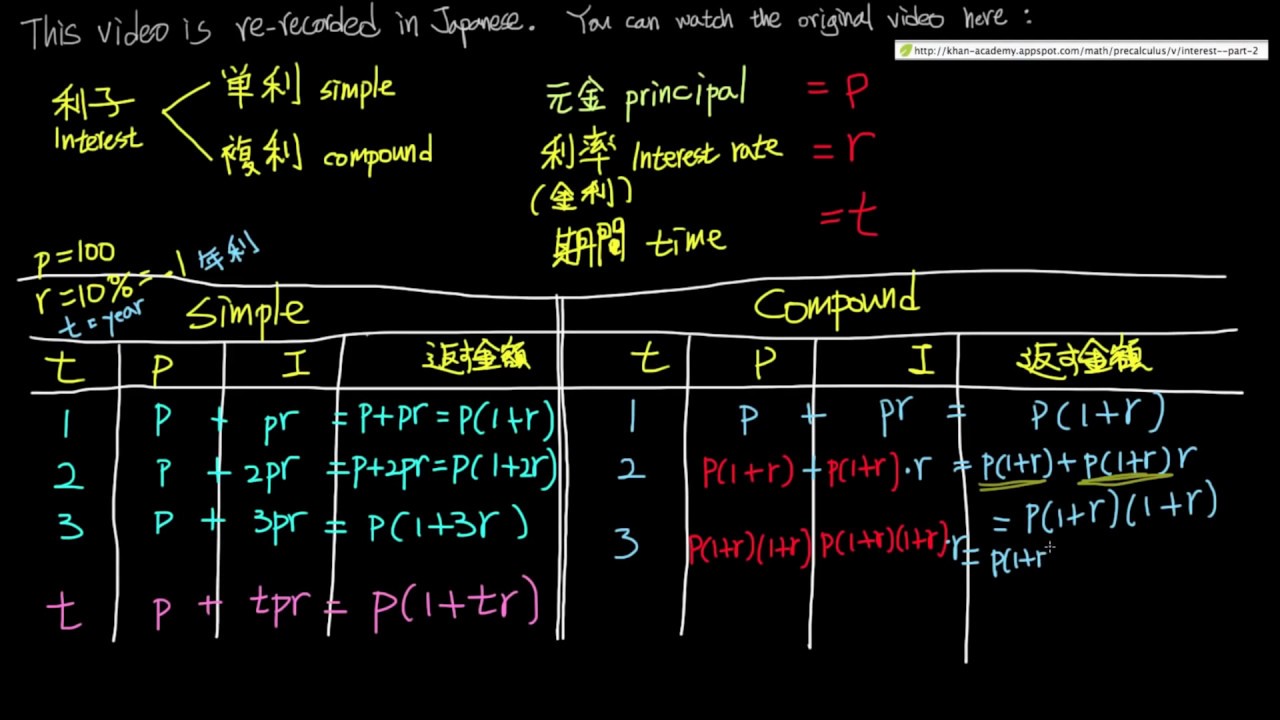 This video is re-recorded in Japanese. You can watch the original video here :
http://khan-academy.appspot.com/math/precalculus/v/interest--part-2
利子 Interest
単利 simple
複利 compound
元金 principal = P
利率 Interest rate = r
(金利)
期間 time = t
P = 100
r = 10% = .1 年利
t = year
Simple
t P I 返す金額
1 P + pr = P+pr = P(1+r)
2 P + 2pr = P+2pr = P(1+2r)
3 P + 3pr = P(1+3r)
t P + tpr = P(1+tr)
Compound
t P I 返す金額
1 P + pr = P(1+r)
2 P(1+r) + P(1+r)·r = P(1+r)+P(1+r)r
= P(1+r)(1+r)
3 P(1+r)(1+r) P(1+r)(1+r)·r = P(1+r